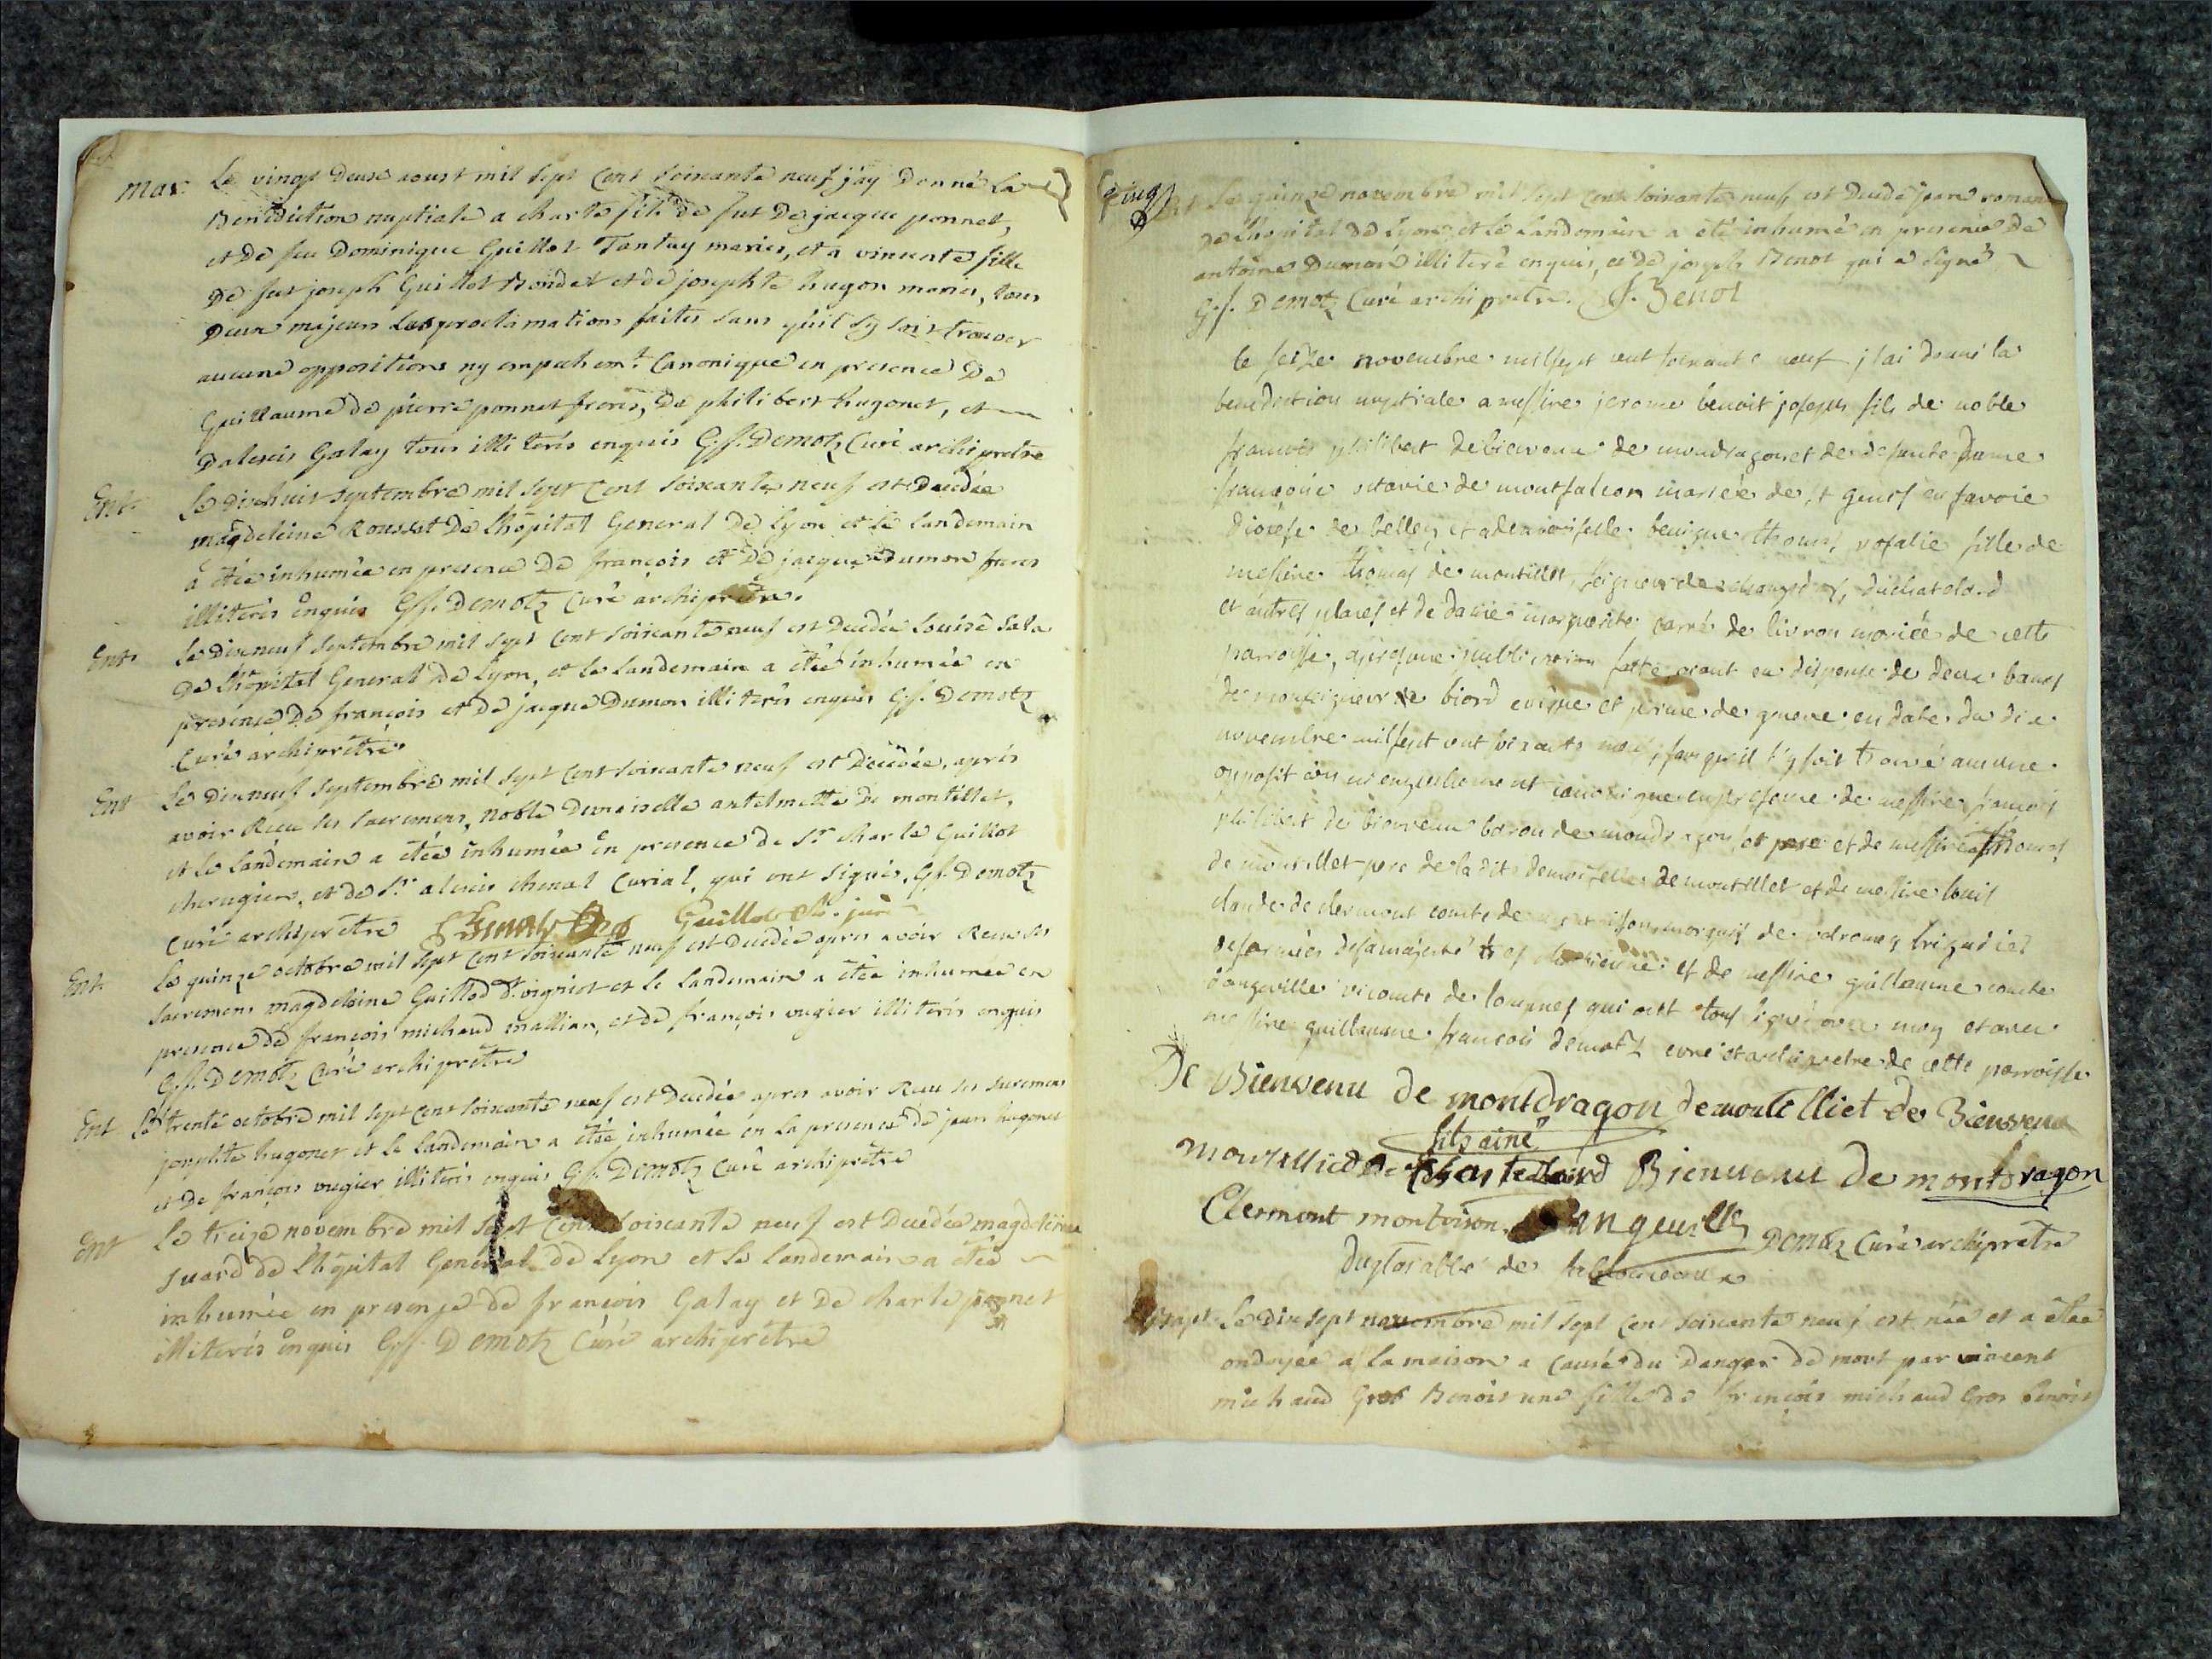 mar. Le vingt deux aoust mil sept cent soixante neuf j'ay Donné La
Benediction nuptiale a charle fils de fut De jacque ponnet,
et De feu Dominique Guillot Tantay maries, et a vincente fille
De fut joseph Guillot Bondet et de josephte hugon maries, tous
Deux majeurs Les proclamations faites sans qu'il s'y soit trouver
aucune oppositions ny empechemt. Canonique en presence De
Guillaume De pierre ponnet freres, De philibert hugonet, et
D'alexis Galay tous illiterés enquis G. f. Demotz Curé archiprêtre
Ent. Le Dixhuit septembre mil sept Cent soixante neuf est Decedée
magdeleine Rousset De l'hôpital General De Lyon et Le Landemain
a étée inhumée en presence De françois et De jacque Dumon freres
illiterés enquis G. f. Demotz Curé archiprêtre.
Ent. Le Dixneuf septembre mil sept Cent soixante neuf est Decedée Louise Sala
De l'hôpital General De Lyon, et Le Landemain a étée inhumée en
presence De françois et De jacque Dumon illiterés enquis G. f. Demotz
Curé archiprêtre
Ent Le Dixneuf septembre mil sept Cent soixante neuf est Decedée, après
avoir Receu ses sacremens, noble Demoiselle antelmette De montillet,
et Le Landemain a étée inhumée en presence de Sr. charle Guillot
chirugien, et de Sr. alexis chenal Curial, qui ont signés, G. f. Demotz
Curé archiprêtre Guillot
Ent. Le quinze octobre mil sept Cent soixante neuf est Decedée apres avoir Receu ses
sacremens magdeleine Guillod et Le Landemain a étée inhumée en
presence De françois michaud mallian, et de françois vugier illiterés enquis
G. f. Demotz Curé archiprêtre
Ent Le trente octobre mil sept Cent soixante neuf est Decedée apres avoir Receu ses sacremens
josephte hugonet et Le Landemain a étée inhumée en La presence De jean hugonet
et De françois vugier illiterés enquis G. f. Demotz Curé archiprêtre
Ent Le treize novembre mil sept Cent soixante neuf est Decedée magdeleine
suard De l'hôpital General De Lyon et Le Landemain a étée
inhumée en presence De françois Galay et De charle ponnet
illiterés enquis G. f. Demotz Curé archiprêtre
Le quinze novembre mil sept Cent soixante neuf est Decedé jean roman
De l'hopital De Lyon, et Le Landemain a été inhumé en presence De
antoine Dumon illiteré enquis, et De joseph Benot qui a signé
G. f. Demotz Curé archiprêtre. J. Benot
le seize novembre mil sept cent soixante neuf j'ai donné la
benediction nuptiale a messire jerome benoit joseph fils de noble
francois philibert debienvenu de mondragon et de defunte Dame
francoise octavie de montfalcon mariée de st genis en savoie
diocese de belley, et a demoiselle benigne thomas rosalie fille de
messire thomas de montillet, seigneur de duchatelard
et autres places et de dame marguerite carré de livron mariée de cette
parroisse, après une publication faite aiant eu dispense de deux bancs
de monseigneur biord evêque et prince de geneve en date du dix
novembre mil sept cent soixante neuf, sans qu'il s'y soit trouvé aucune
opposition ni empechement canonique en presence de messire francois
philibert de bienvenu baron de mondragon et pere et de messire thomas
de montillet pere de la dite demoiselle de montillet et de messire louis
claude de clermont comte de marquis de brigadier
des armées de sa majesté tres chretienne et de messire guillaume comte
d'angeville vicomte de lompnes qui ont tous signé avec moy et avec
messire guillaume francois demotz curé et archiprêtre de cette parroisse
De Bienvenu de montdragon demontilliet de Bienvenu
fils ainé
montilliet De Chastellard Bienvenu de montdragon
Clermont montoison angeville Demotz Curé archiprêtre
Bapt. Le Dix sept novembre mil sept Cent soixante neuf est née et a étée
ondoyée a la maison a Cause du Danger de mort par vincent
michaud Gros Benoit une fille de françois michaud Gros benoit